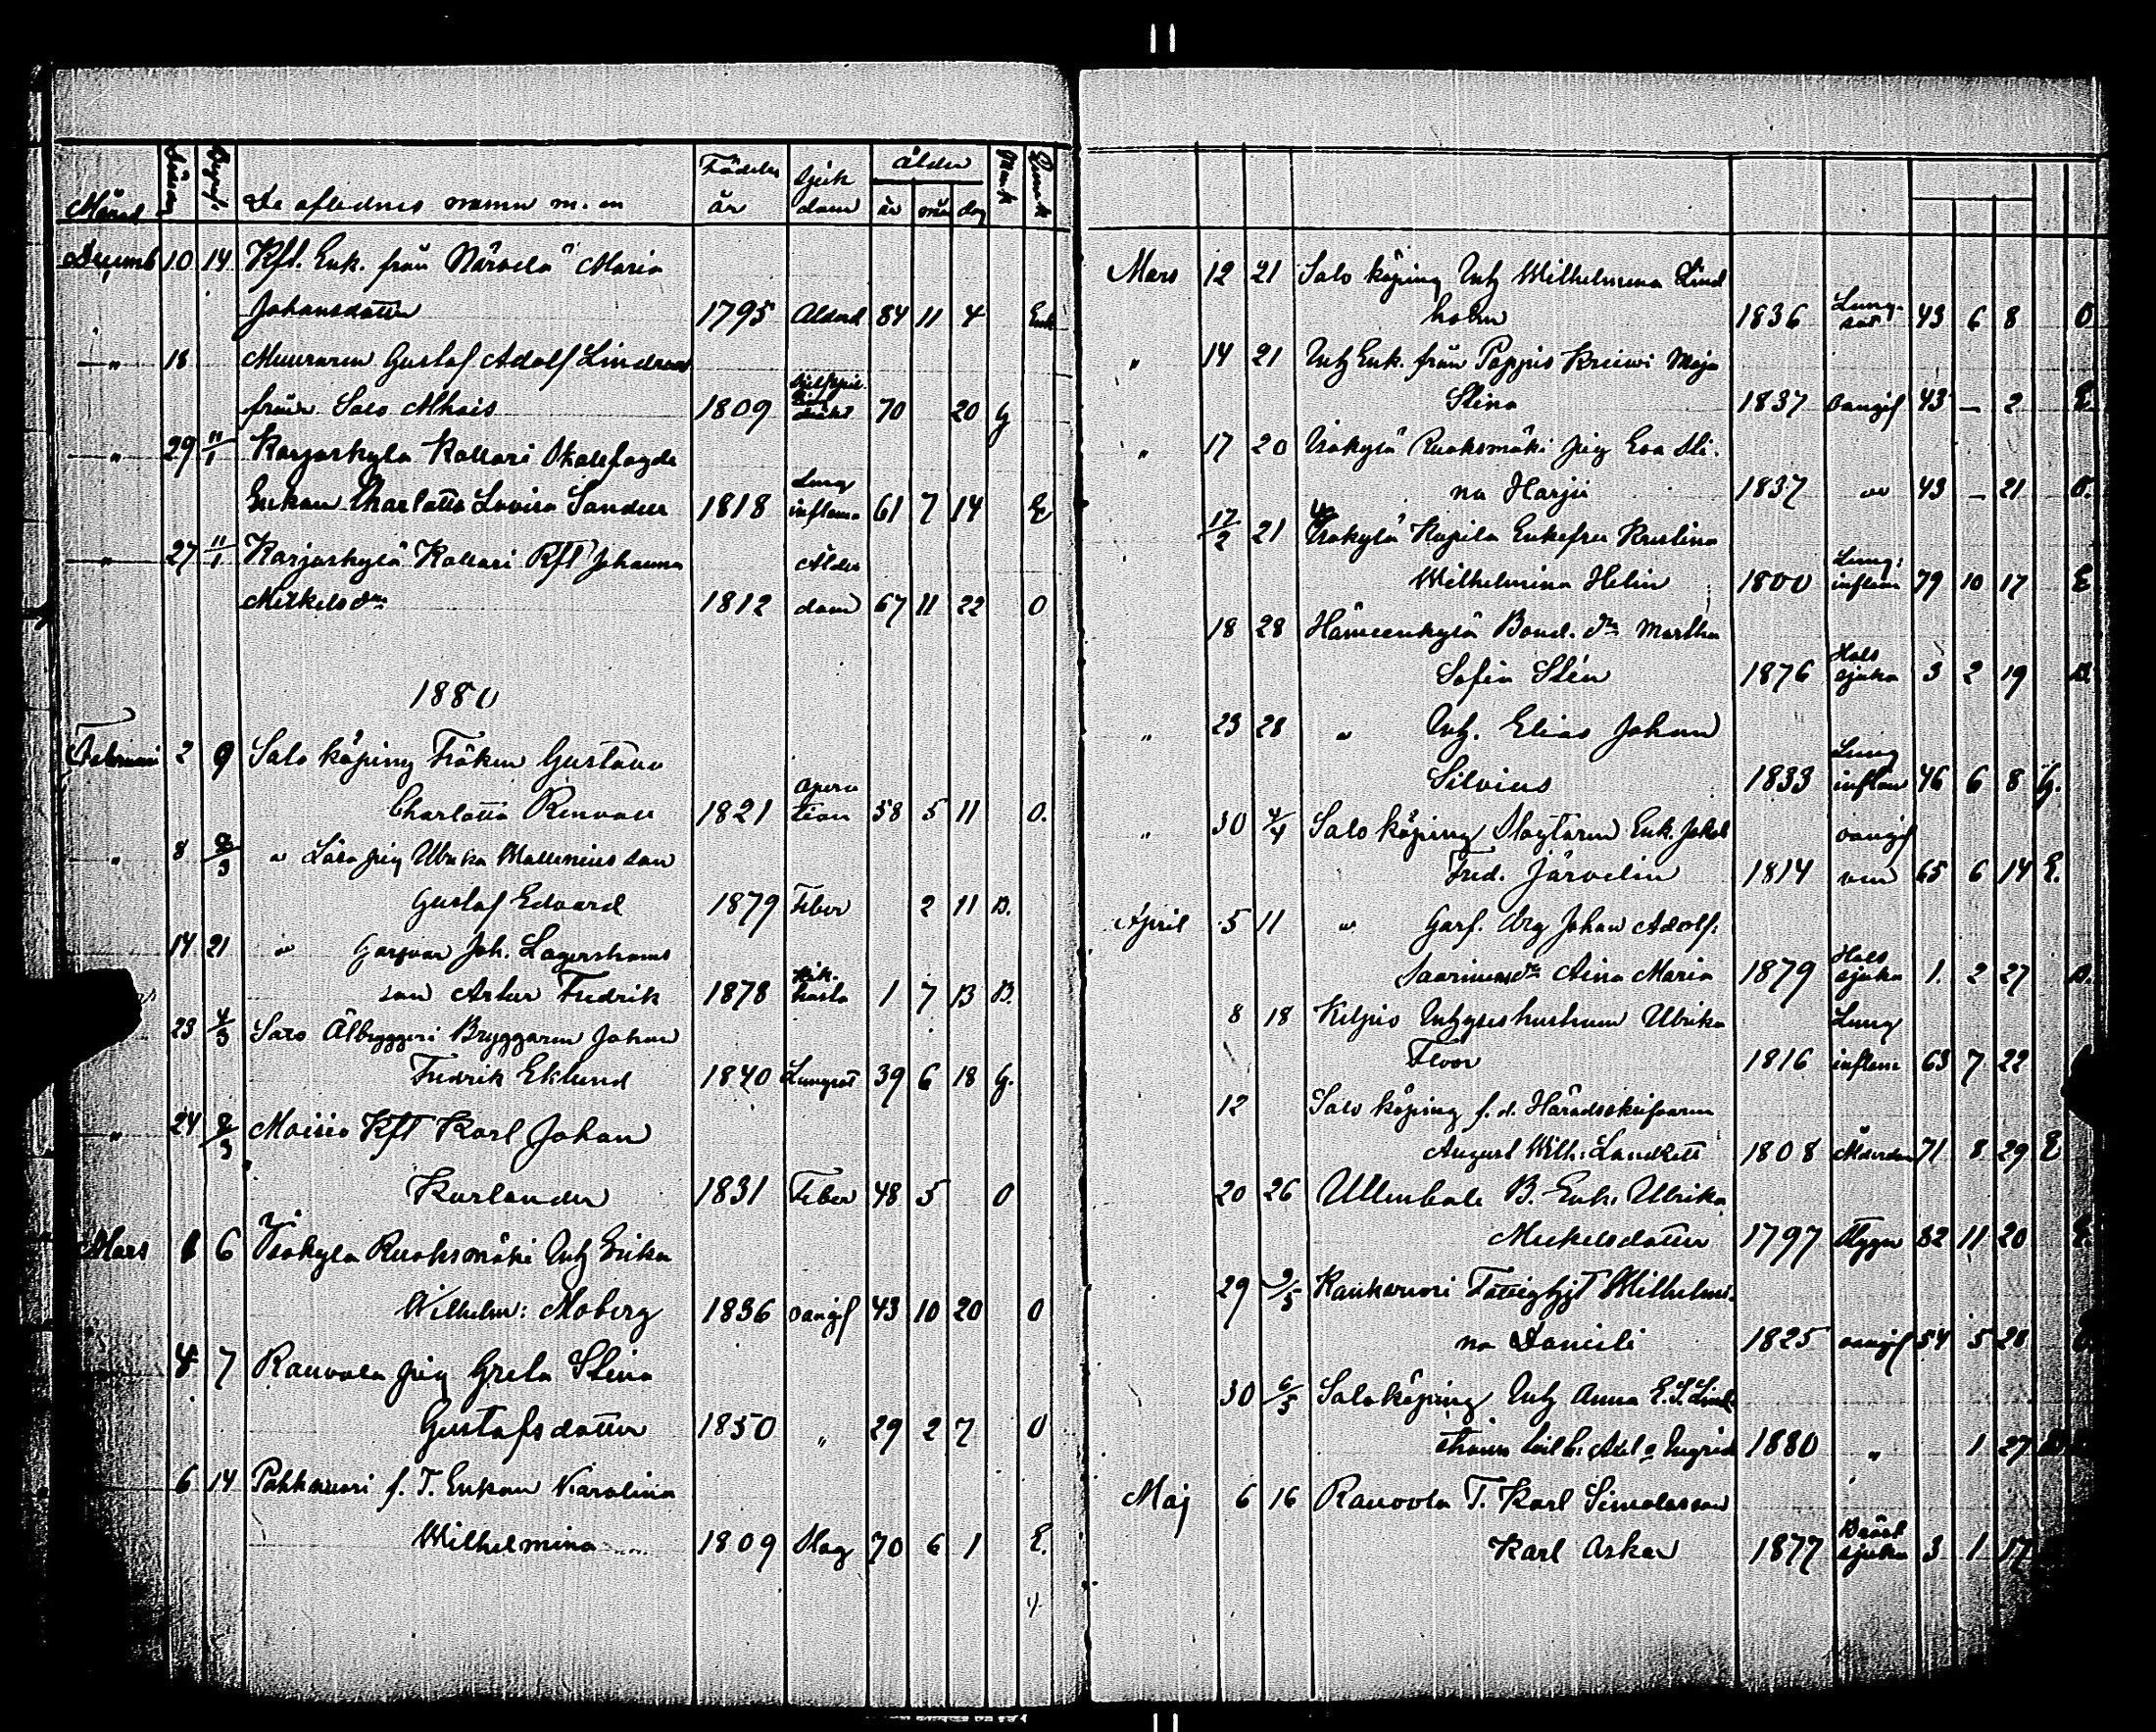 Månad Dödsdag Begraf. De aflidnes namn m. m Födelse år Sjuk dom ålder år mån dag Mank Qvink
Decemb 10 14 Kft. Enk. från Närvelä Maria
Johansdotter 1795 Alderd 84 11 4 Enk
" 18 Muuraren Gustaf Adolf Lindroos
från Salo Alhais 1809 70 20 G
" 29 11/1 Karjaskylä Kollari Skallfogde
Enkan Charlotta Lovisa Sandell 1818 Lung inflama 61 7 14 E
" 27 11/1 Karjaskylä Kollari Kft Johanna
Mickelsdr 1812 Ålder dom 67 11 22 O
1880
Februari 2 9 Salo köping Fröken Gustava
Charlotta Renvall 1821 Opera tion 58 5 11 O.
" 8 8/3 " Lösa pig Ulrika Wallenius son
Gustaf Edvard 1879 Feber 2 11 B.
14 21 " Garfvar Joh. Lagerströms
son Artur Fredrik 1878 Kik hosta 1 7 13 B.
23 4/3 Salo Ålbryggeri Bryggaren Johan
Fredrik Eklund 1840 Lungsot 39 6 18 G.
" 24 8/3 Moisio Kft Karl Johan
Karlander 1831 Feber 48 5 O
Mars 1 6 Isokylä Ruoksmäki Inh Erika
Wilhelm: Moberg 1836 oangif 43 10 20 O
4 7 Rauvola pig Greta Stina
Gustafsdotter 1850 " 29 2 7 O
6 14 Pahkavuori f. T. Enkan Karolina
Wilhelmina 1809 Slag 70 6 1 E.
Mars 12 21 Salo köping Inh Wilhelmina Lind
holm 1836 Lung- sot 43 6 8 O
" 14 21 Inh Enk. från Pappis Kreiwi Maja
Stina 1837 oangif 43 — 2 E.
" 17 20 Isokylä Ruoksmäki pig Eva Sti-
na Harju 1837 " 43 — 21 O.
17/2 21 Isokylä Kupila Enkefru Kristina
Wilhelmina Helin 1800 Lung: inflam 79 10 17 E
18 28 Hämeenkylä Bond. dr Martha
Sofia Stén 1876 Hals sjuka 3 2 19 B.
" 23 28 " Inh. Elias Johan
Silvius 1833 Lung inflam 46 6 8 G.
" 30 4/4 Salo köping Slagtaren Enk. Jakob
Fred. Järvelin 1814 oangif ven 65 6 14 E.
April 5 11 " Garf. Arg Johan Adolf:
Saarinens dr Aina Maria 1879 Hals sjuka 1. 2 27 B.
8 18 Kilpio Inhyses hustrun Ulrika
Floor 1816 Lung inflam 63 7 22
12 Salo köping f. d. Häradsskrifvaren
August Wilh: Landzett 1808 Ålderdom 71 8 29 E
20 26 Ullenbale B. Enk: Ulrika
Mickelsdotter 1797 Stygn 82 11 20 E.
29 9/5 Kaukavuori Fattighjt Wilhelmi-
na Danieli 1825 oangif 54 5 28
30 6/5 Salo köping Inh Anna E. S. Lind
ströms Axel Ingrid 1880 " 1 27
Maj 6 16 Rauvola T. Karl Simolas son
Karl Oskar 1877 Bröst sjuka 3 1 17